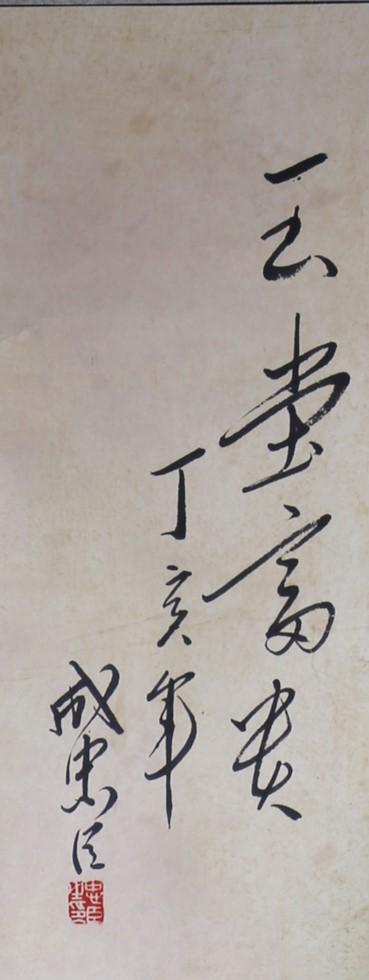 玉堂富贵
丁亥年
成忠臣